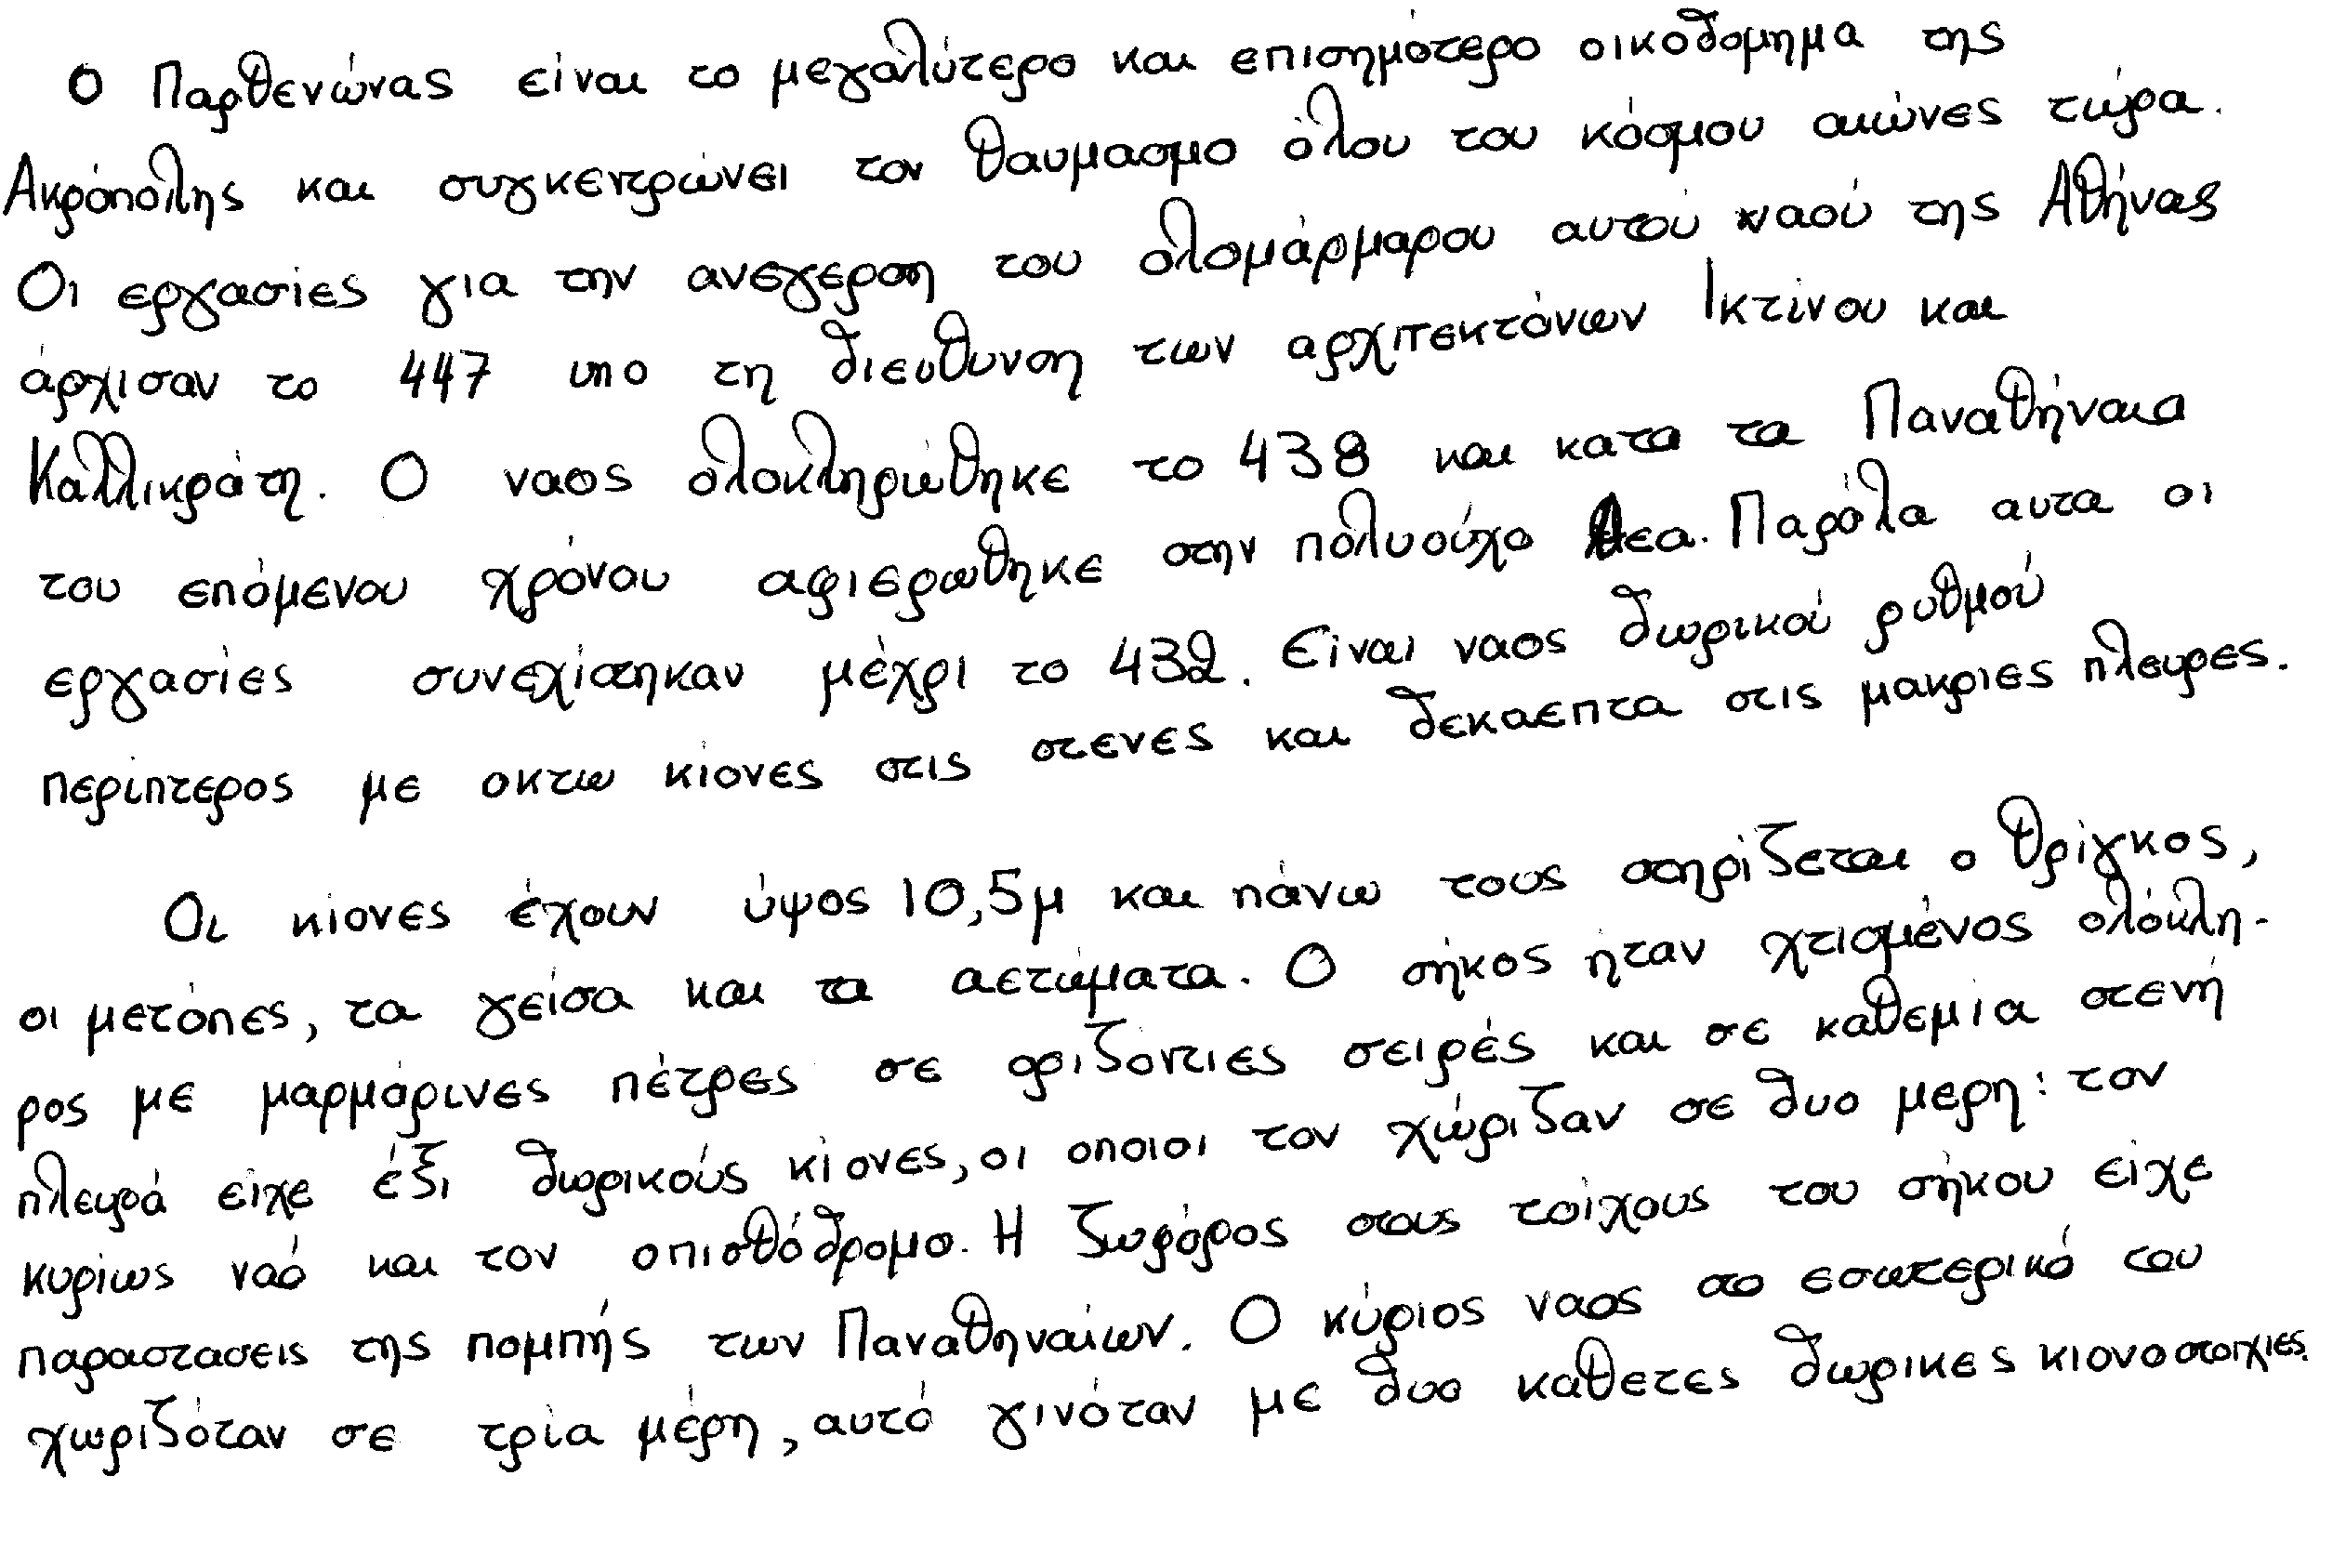 Ο Παρθενώνας είναι το μεγαλύτερο και επισημότερο οικοδομημα της
Ακρόπολης και συγκεντρώνει τον θαυμασμο όλου του κόσμου αιώνες τώρα.
Οι εργασίες για την ανεγερση του ολομάρμαρου αυτού ναού της Αθήνας
άρχισαν το 447 υπο τη διεύθυνση των αρχιτεκτόνων Ικτίνου και
Καλλικράτη. Ο ναος ολοκληρώθηκε το 438 και κατα τα Παναθήναια
του επόμενου χρόνου αφιερωθηκε στην πολυούχο θεα. Παρόλα αυτα οι
εργασίες συνεχίστηκαν μέχρι το 432. Είναι ναος δωρικού ρυθμού
περίπτερος με οκτω κίονες στις στενες και δεκαεπτα στις μακριες πλευρες.
Οι κίονες έχουν ύψος 10,5μ και πάνω τους στηρίζεται ο θρίγκος,
οι μετόπες, τα γείσα και τα αετώματα. Ο σήκος ήταν χτισμένος ολόκλη-
ρος με μαρμάρινες πέτρες σε οριζόντιες σειρές και σε καθεμία στενή
πλευρά είχε έξι δωρικούς κίονες, οι οποιοι τον χώριζαν σε δυο μερη: τον
κυρίως ναό και τον οπισθόδρομο. Η ζωφόρος στους τοίχους του σήκου είχε
παραστασεις της πομπής των Παναθηναίων. Ο κύριος ναος στο εσωτερικό του
χωριζόταν σε τρία μέρη, αυτό γινόταν με δυο καθετες δωρικες κιονοστοιχιες.